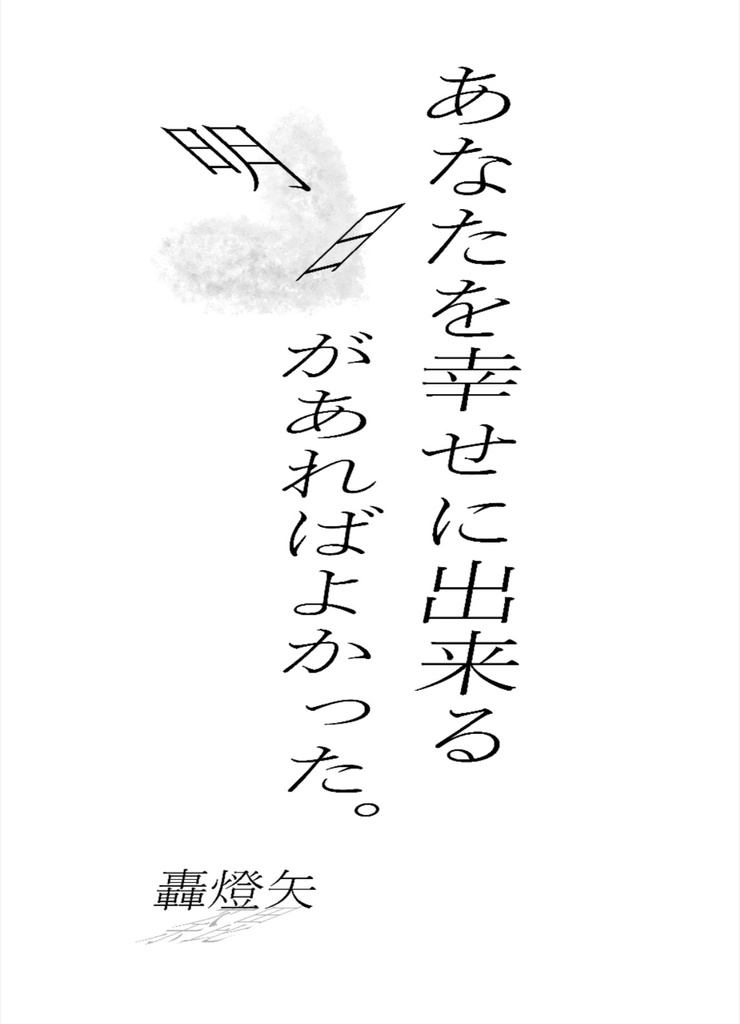 あなたを幸せに出来る
明日
があればよかった。
轟燈矢